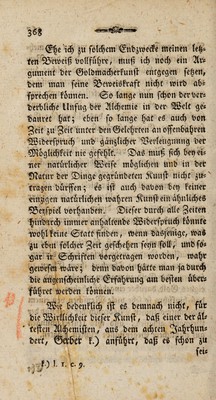 368
Ehe ich zu solchem Endzwecke meinen letz-
ten Beweiß vollführe, muß ich noch ein Ar-
gument der Goldmacherkunst entgegen setzen,
dem man seine Beweiskraft nicht wird ab-
sprechen können. So lange nun schon der ver-
derbliche Unfug der Alchemie in der Welt ge-
dauret hat; eben so lange hat es auch von
Zeit zu Zeit unter den Gelehrten an offenbahren
Widerspruch und gänzlicher Verleugnung der
Möglichkeit nie gefehlt. Das muß sich bey ei-
ner natürlicher Weise möglichen und in der
Natur der Dinge gegründeten Kunst nicht zu-
tragen dürffen; es ist auch davon bey keiner
einzigen natürlichen wahren Kunst ein ähnliches
Beyspiel vorhanden. Dieser durch alle Zeiten
hindurch immer anhaltende Widerspruch könnte
wohl keine Statt finden, wenn dasjenige, was
zu eben solcher Zeit geschehen seyn soll, und so-
gar in Schriften vorgetragen worden, wahr
gewesen wäre; denn davon hätte man ja durch
die augenscheinliche Erfahrung am besten über-
führet werden können.
Wie bedenklich ist es demnach nicht, für
die Wirklichkeit dieser Kunst, daß einer der äl-
testen Alchemisten, aus dem achten Jahrhun-
dert, Geber k.) anführt, daß es schon zu
sei-
k.) l. 1. c. 9.